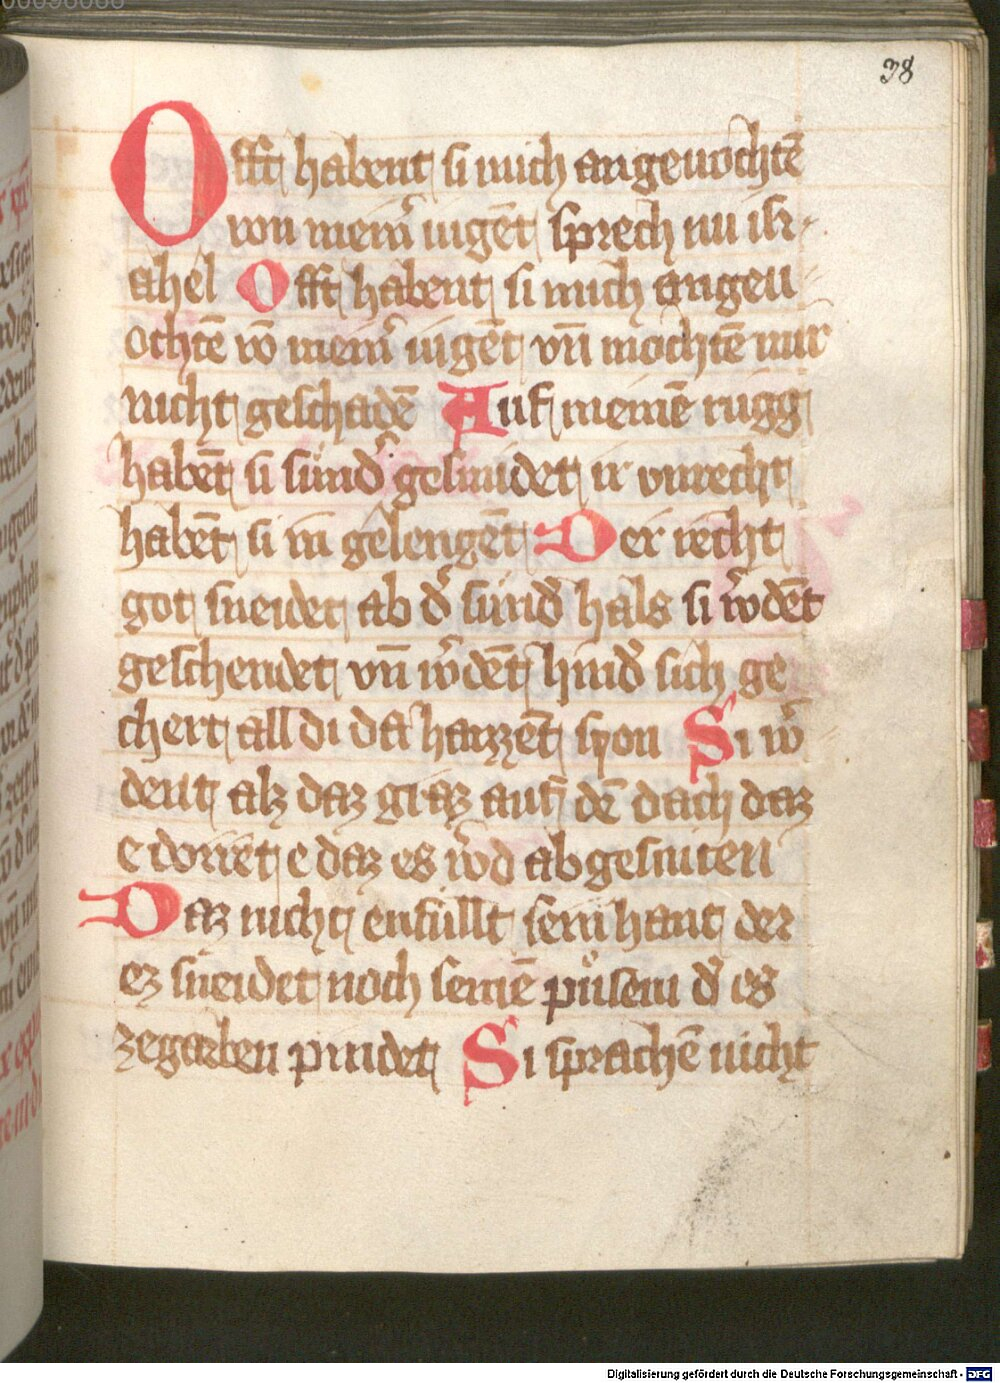 38
Offt habent si mich angeuochtē
von meinˀ iugēt sprech nu isr-
ahel Offt habent si mich angeu
ochtē vō meinˀ iugēt vn̄ mochtē mir
nicht geschadē Auf meinē rugg
habēt si sünd᾽ gesmidet ir vnrecht
habēt si in gelengēt Der recht
got sneidet ab d᾽ sünd᾽ hals si w᾽dēt
geschendet vn̄ w᾽dēt hind᾽ sich ge
chert all di da hazzēt syon Si w᾽
dent alz daz graz auf dē dach daz
e dorrēt e daz es w᾽d ab gesniten
Daz nicht enfüllt sein hant der
ez sneidet noch seinē püsem d᾽ es
ze garben pindet Si sprachē nicht
Digitalisierung gefördert durch die Deutsche Forschungsgemeinschaft - DFG